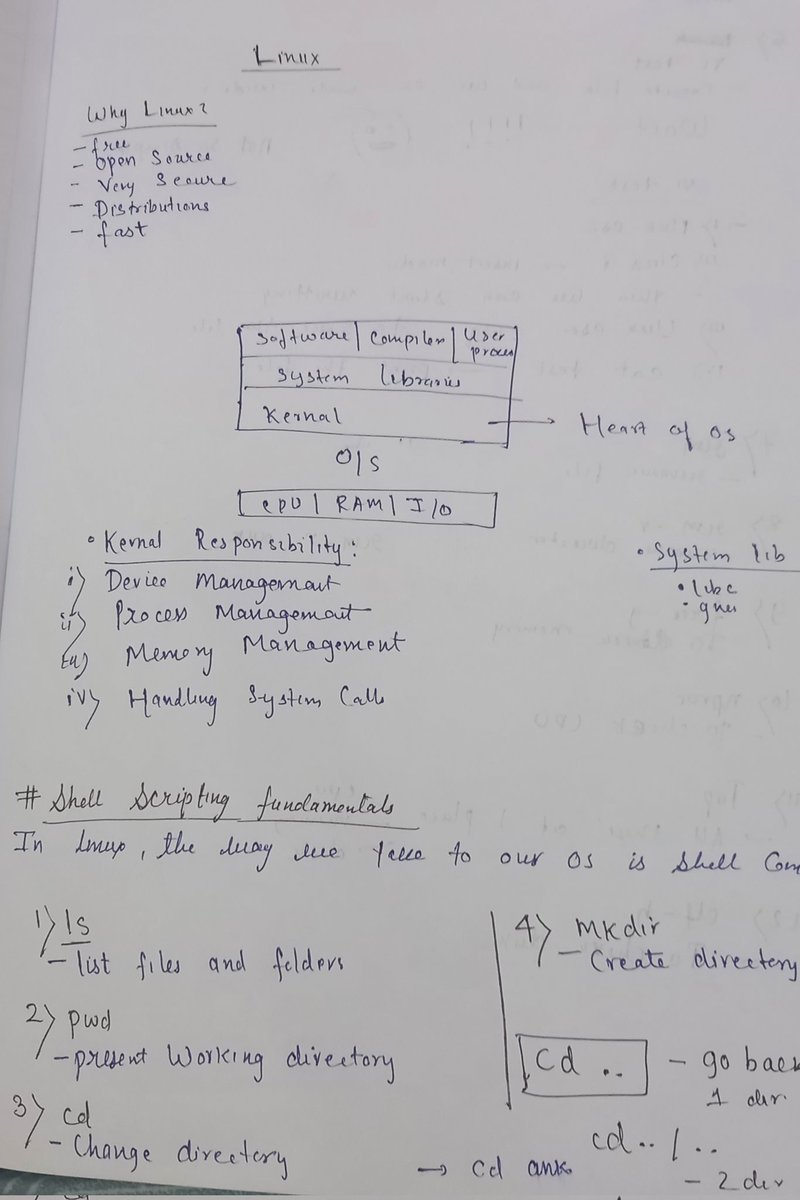 Linux
Why Linux?
- free
- open Source
- Very Secure
- Distributions
- fast
Software | Compiler | User
System libraries
Kernal → Heart of OS
O/S
CPU | RAM | I/O
• Kernal Responsibility:
i) Device Management
ii) Process Management
iii) Memory Management
iv) Handling System Calls
• System lib
• libc
• gnu
# Shell Scripting fundamentals
In Linux, the way we talk to our OS is Shell Com
1) ls
- list files and folders
2) pwd
- present Working directory
3) cd
- Change directory
4) mkdir
- Create directory
cd .. - go back
1 dir.
cd../..
- 2 dir
→ cd